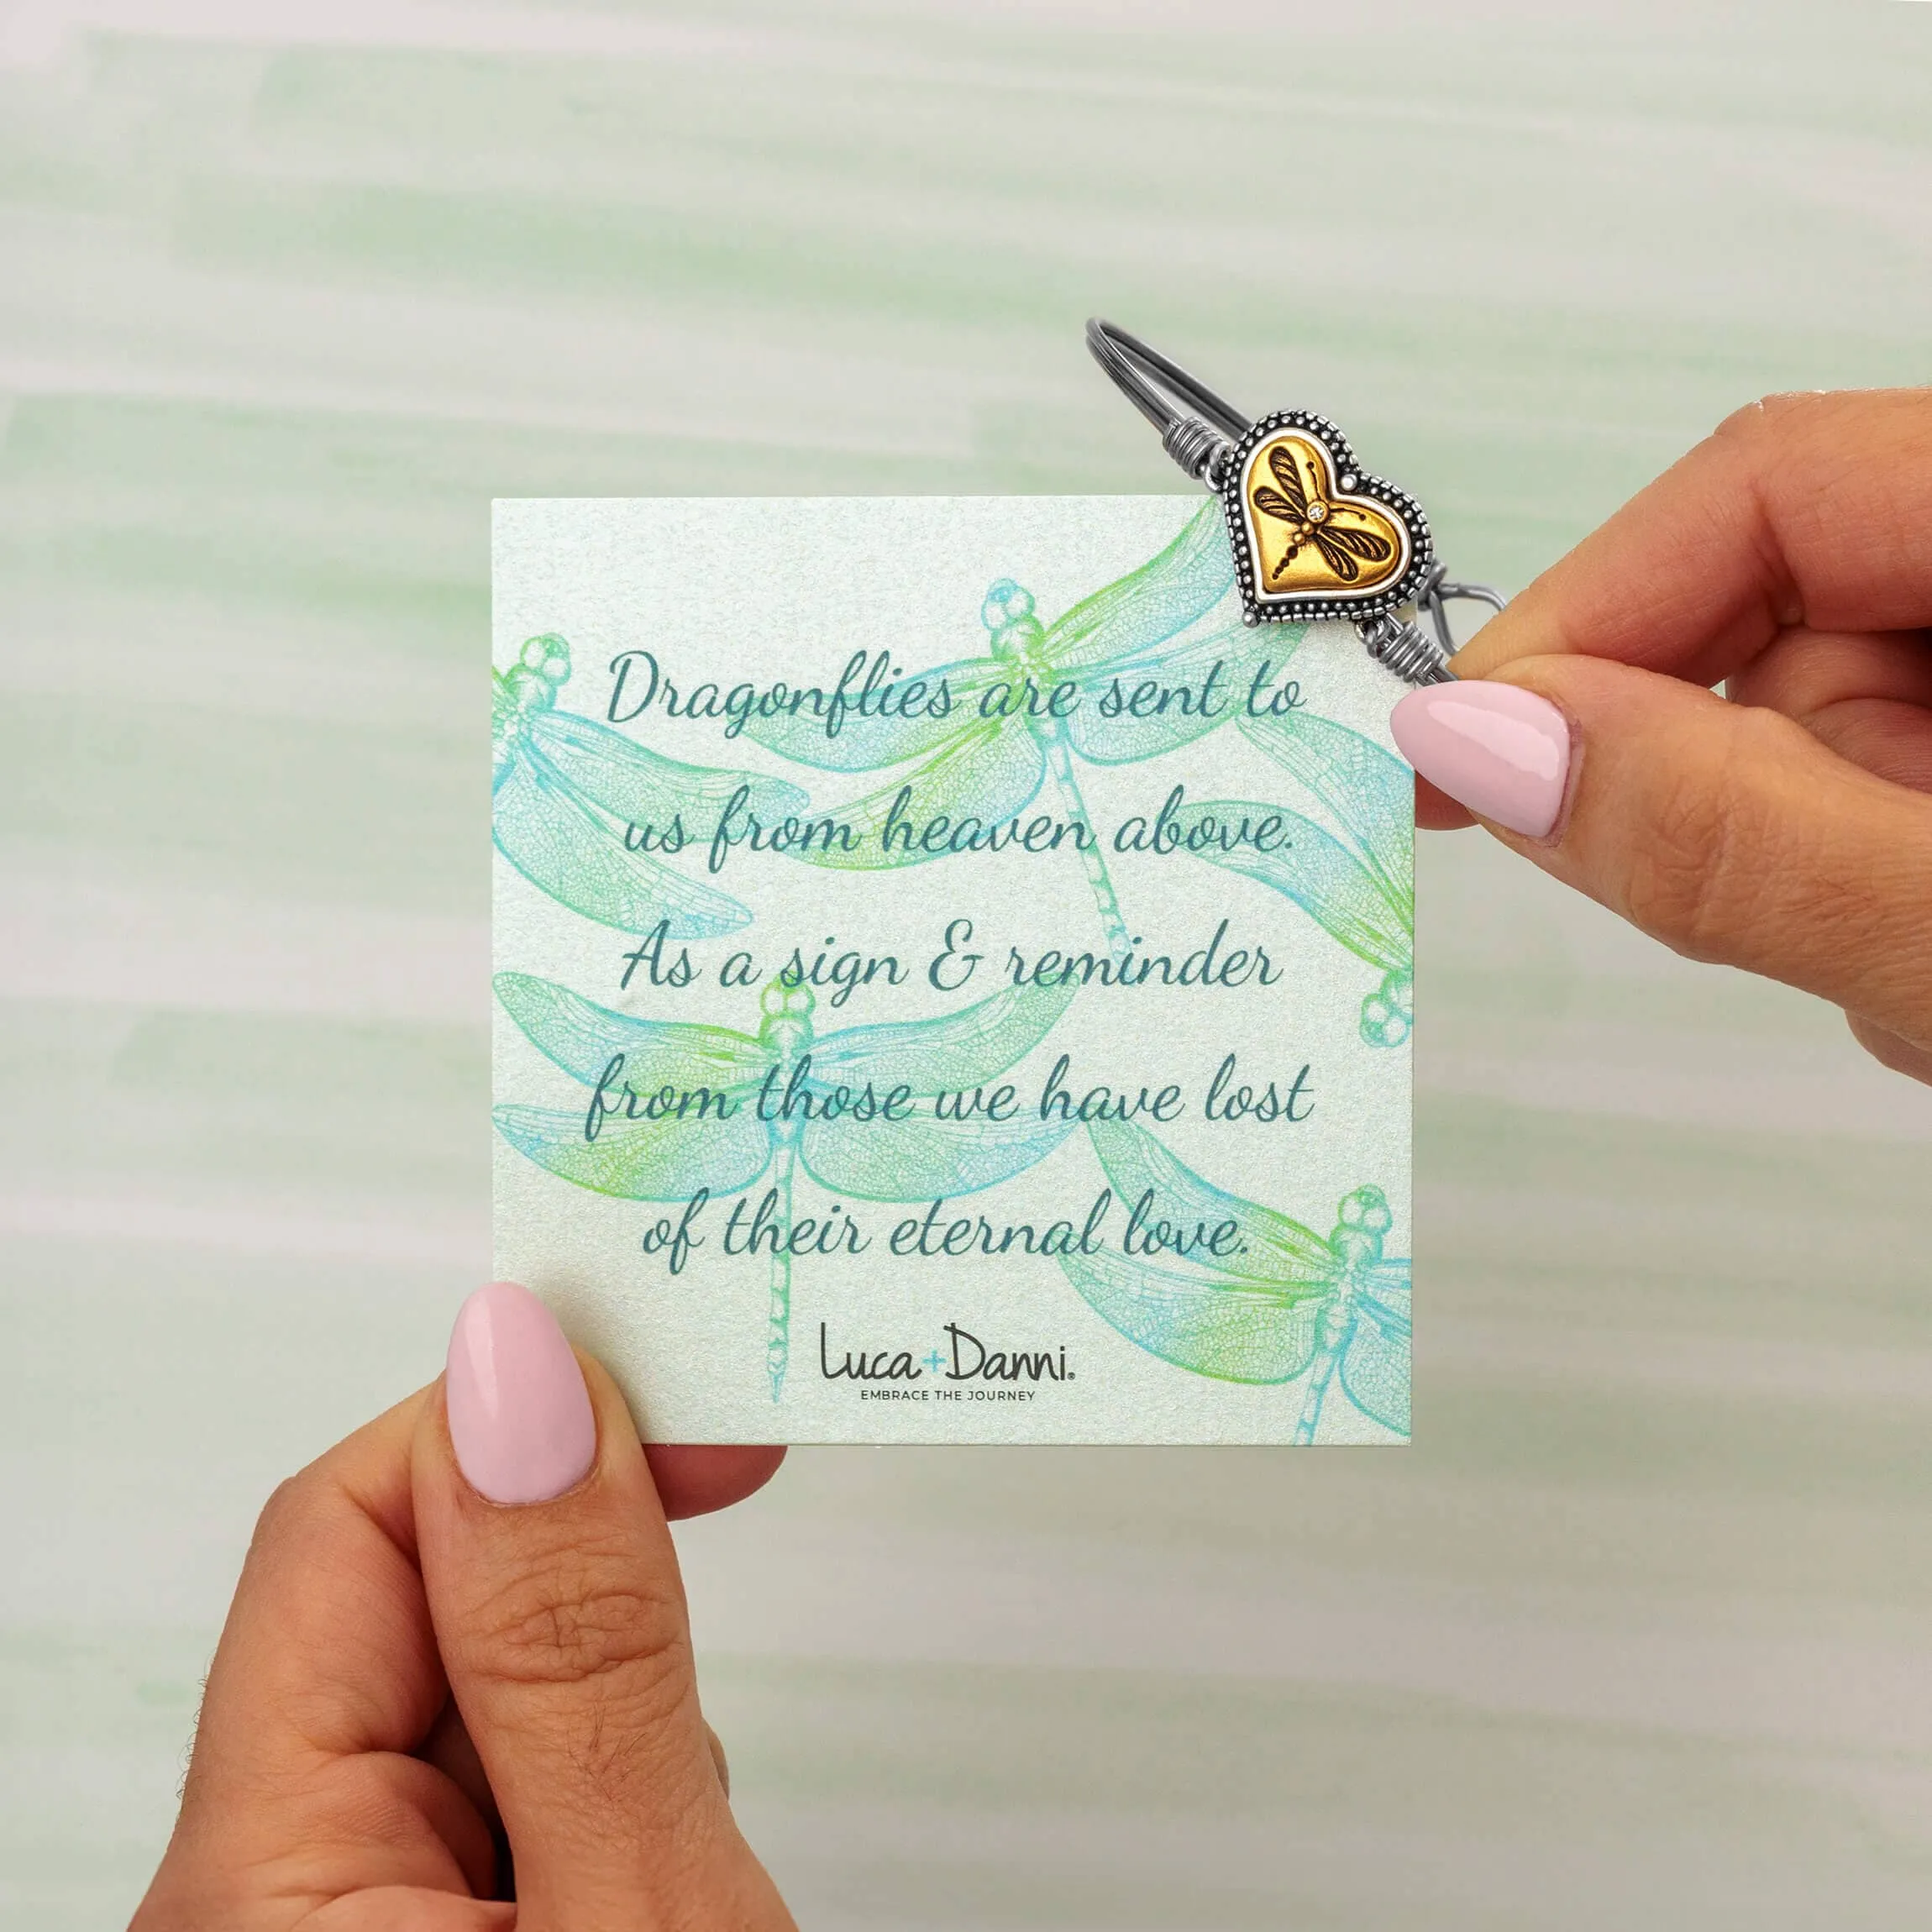 Dragonflies are sent to
us from heaven above.
As a sign & reminder
from those we have lost
of their eternal love.
Luca+Danni®
EMBRACE THE JOURNEY